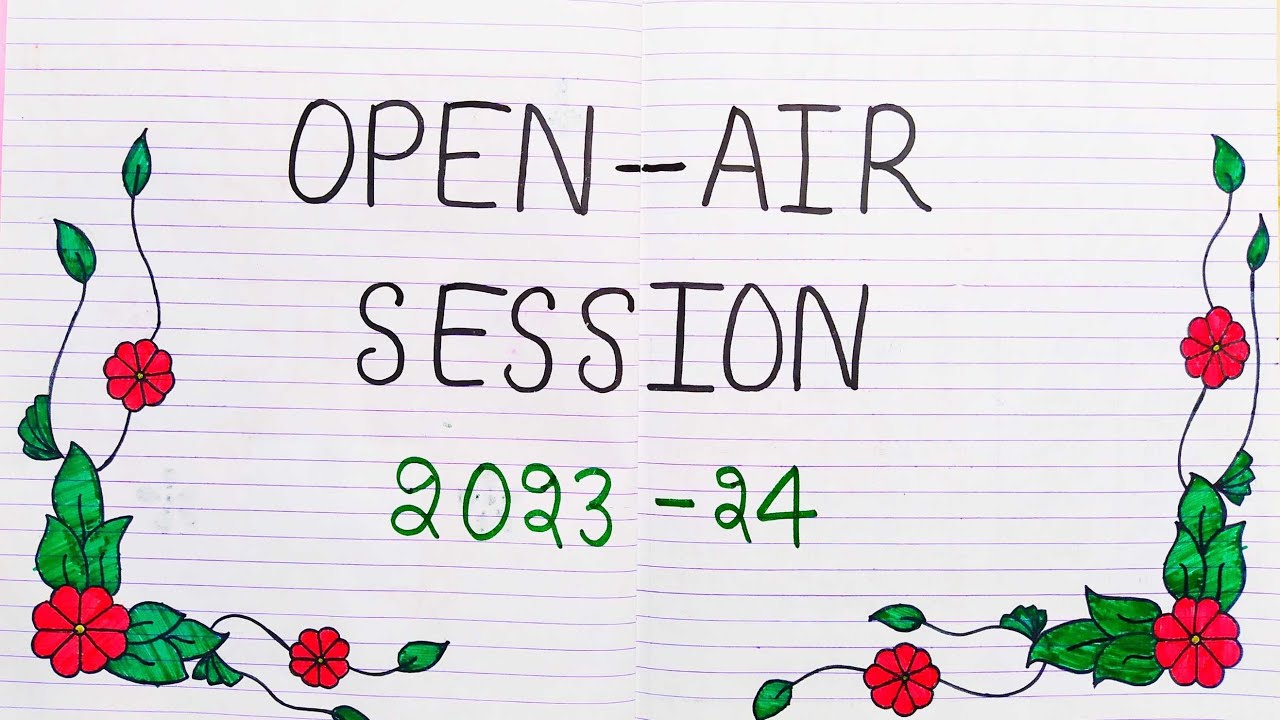 OPEN-AIR
SESSION
2023-24